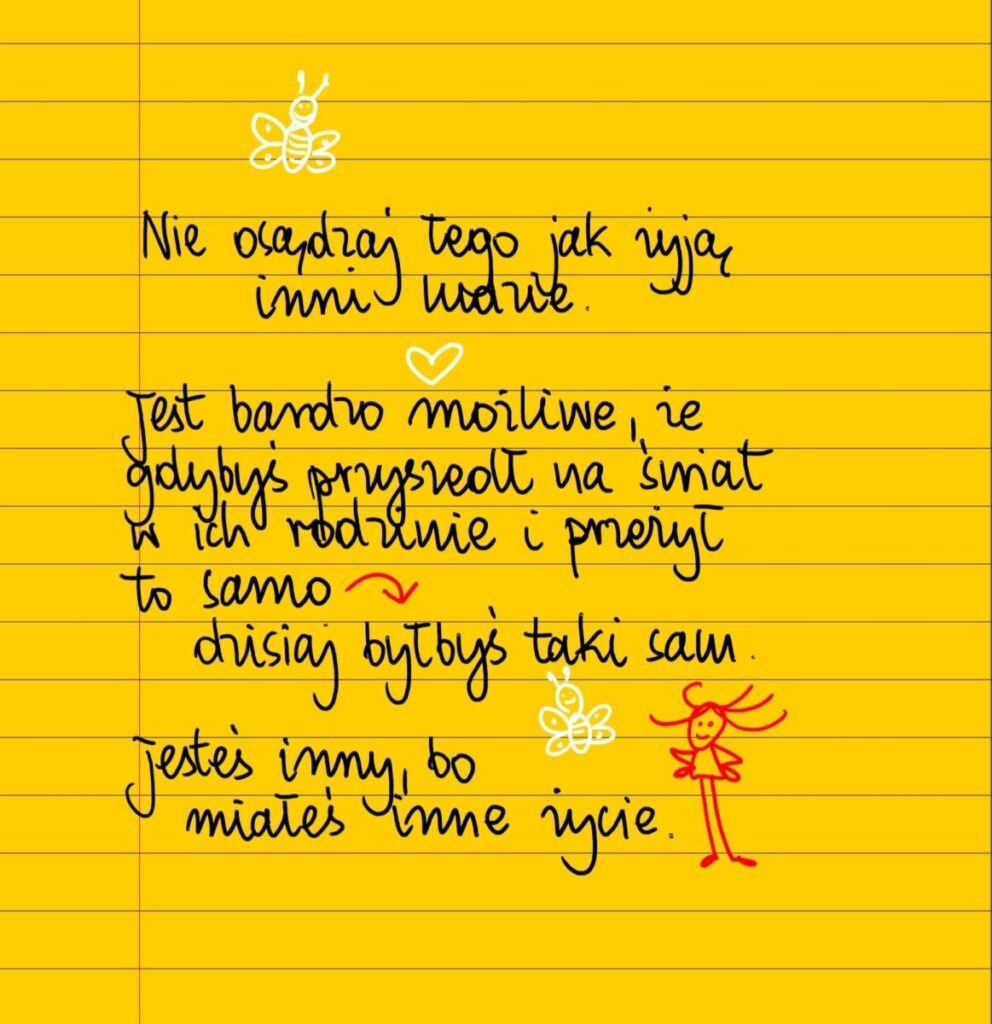 Nie osądzaj tego jak żyją
inni ludzie.
Jest bardzo możliwe, że
gdybyś przyszedł na świat
w ich rodzinie i przeżył
to samo
dzisiaj byłbyś taki sam.
Jesteś inny, bo
miałeś inne życie.